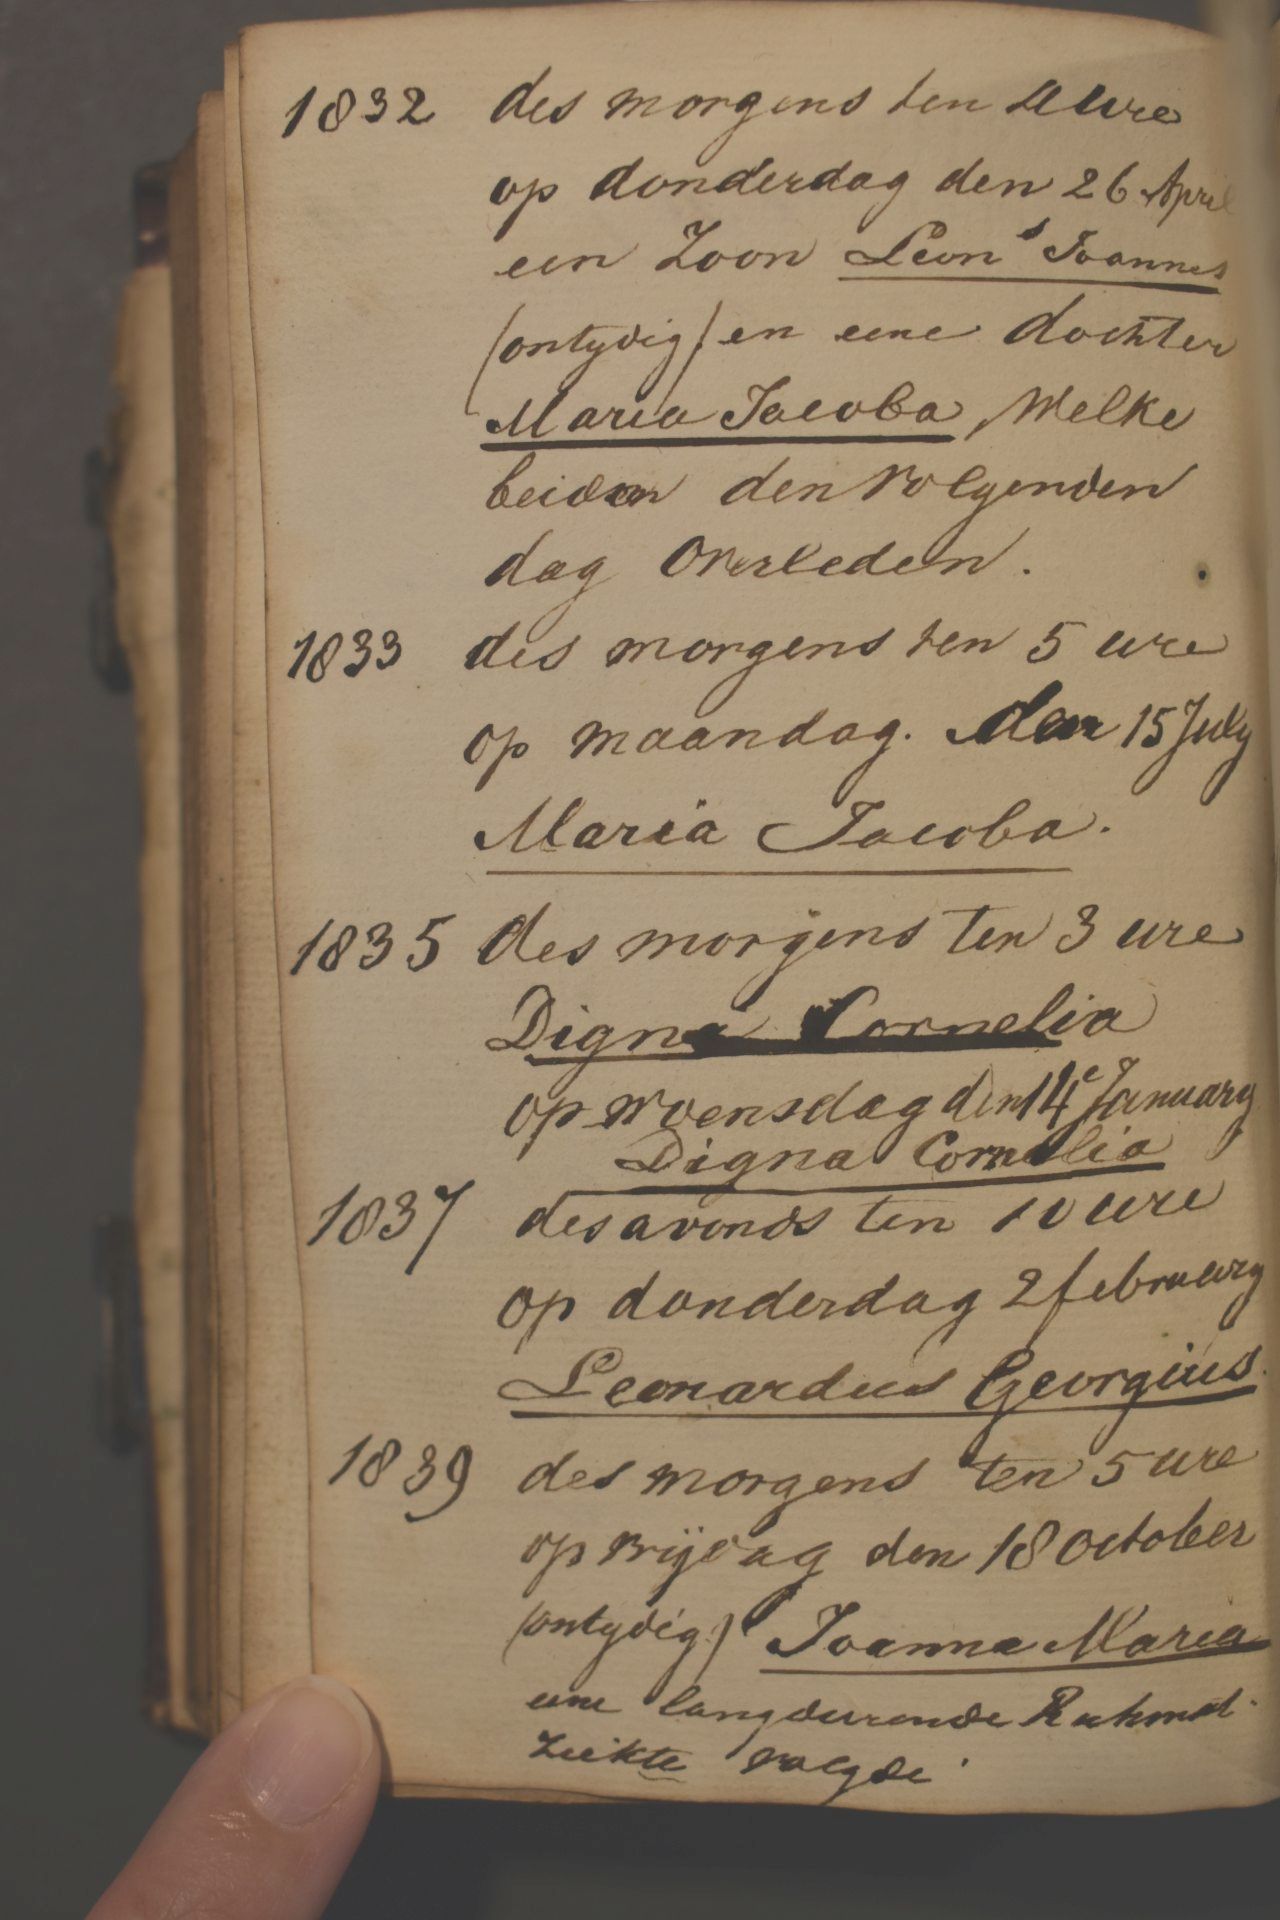 1832 des morgens ten ure
op donderdag den 26 April
een Zoon Leons Joannes
(ontydig) en eene dochter
Maria Jacoba, Welke
beiden den volgenden
dag Overleden.
1833 des morgens ten 5 ure
op maandag. den 15 July
Maria Jacoba.
1835 des morgens ten 3 ure
Digna Cornelia
op woensdag den 14e January
Digna Cornelia
1837 des avonds ten 10 ure
op donderdag 2 february
Leonardus Georgius.
1839 des morgens ten 5 ure
op vrijdag den 18 October
(ontydig) Joanna Maria
eene langdurende
Ziekte volgde